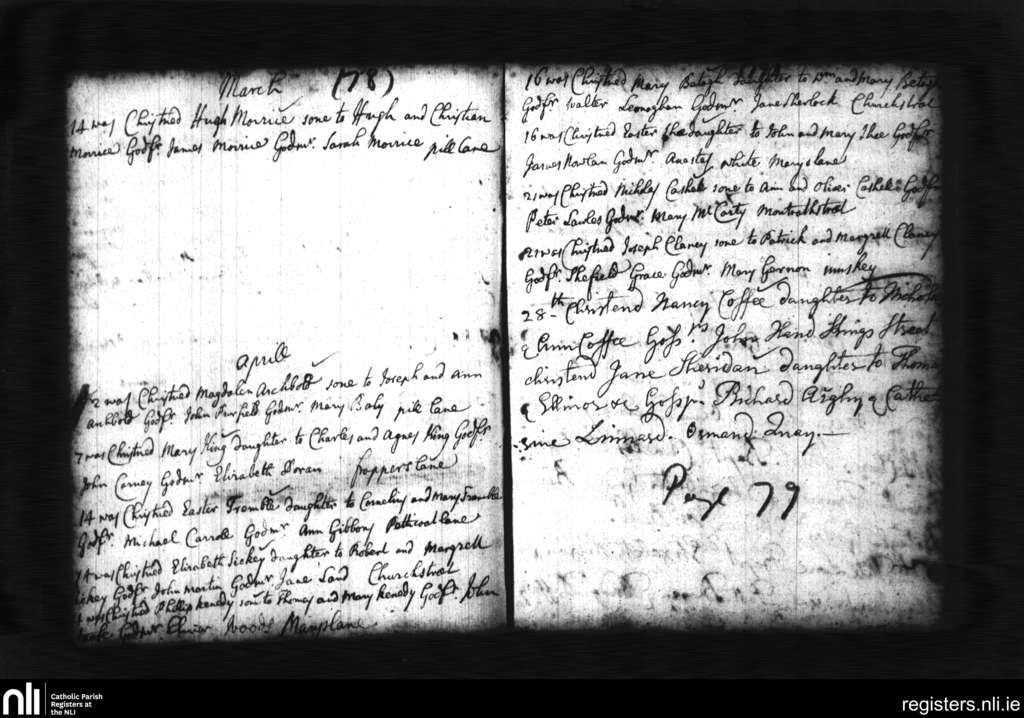 March (78)
14 was Christned Hugh Morrice sone to Hugh and Christian
Morrice Godfr. James Morrice Godmr. Sarah Morrice pill lane
Aprill
2 was Christned Magdalen Archbold sone to Joseph and Ann
Archbold Godfr. John Godmr. Mary Baly pill lane
7 was Christned Mary King daughter to Charles and Agnes King Godfr.
John Carney Godmr. Elizabeth Doran frapper lane
14 was Christned Easter Tremble daughter to Cornelius and Mary Tremble
Godfr. Michael Carroll Godmr. Ann Gibbons Petticoat lane
14 was Christned Elizabeth Lickey daughter to Robert and Margrett
Lickey Godfr. John Martin Godmr. Jane Churchstreet
was Christned Phillip Kenedy sone to Thomas and Mary Kenedy Godfr. John
Godmr. Woods Marys lane
16 was Christned Mary Betagh daughter to Wm and Mary Betagh
Godfr. Walter Leonoghan Godmr. Jane Sherlock Churchstreet
16 was Christned Easter Shee daughter to John and Mary Shee Godfr.
James Nowlan Godmr. Anestas white Marys lane
21 was Christned Nicholas Cashell sone to Ann and Oliver Cashell Godfr.
Peter Lawles Godmr. Mary McCarty
21 was Christned Joseph Clancy sone to Patrick and Margrett Clancy
Godfr. Shefield Grace Godmr. Mary Gernon
28th Christend Nancy Coffee daughter to Nichols
& Ann Coffee Goss.ps John Hand Kings Street
christend Jane Sheridan daughter to Thomas
& Ellinor Goss.ps Richard & Cathe
rine Linnard. Ormand Quay.
Page 79
nli Catholic Parish
Registers at
the NLI
registers.nli.ie